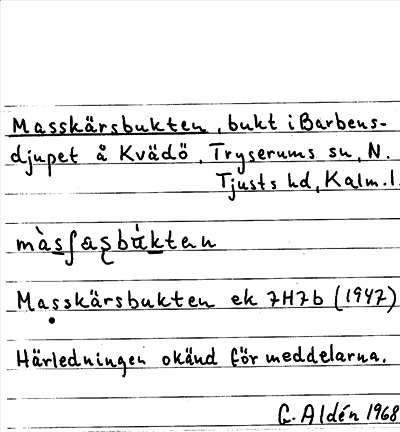 Masskärsbukten, bukt i Barbens-
djupet å Kvädö, Tryserums sn, N.
Tjusts hd, Kalm. l.
Masskärsbukten ek 7H7b (1947)
Härledningen okänd för meddelarna.
C. Aldén 1968